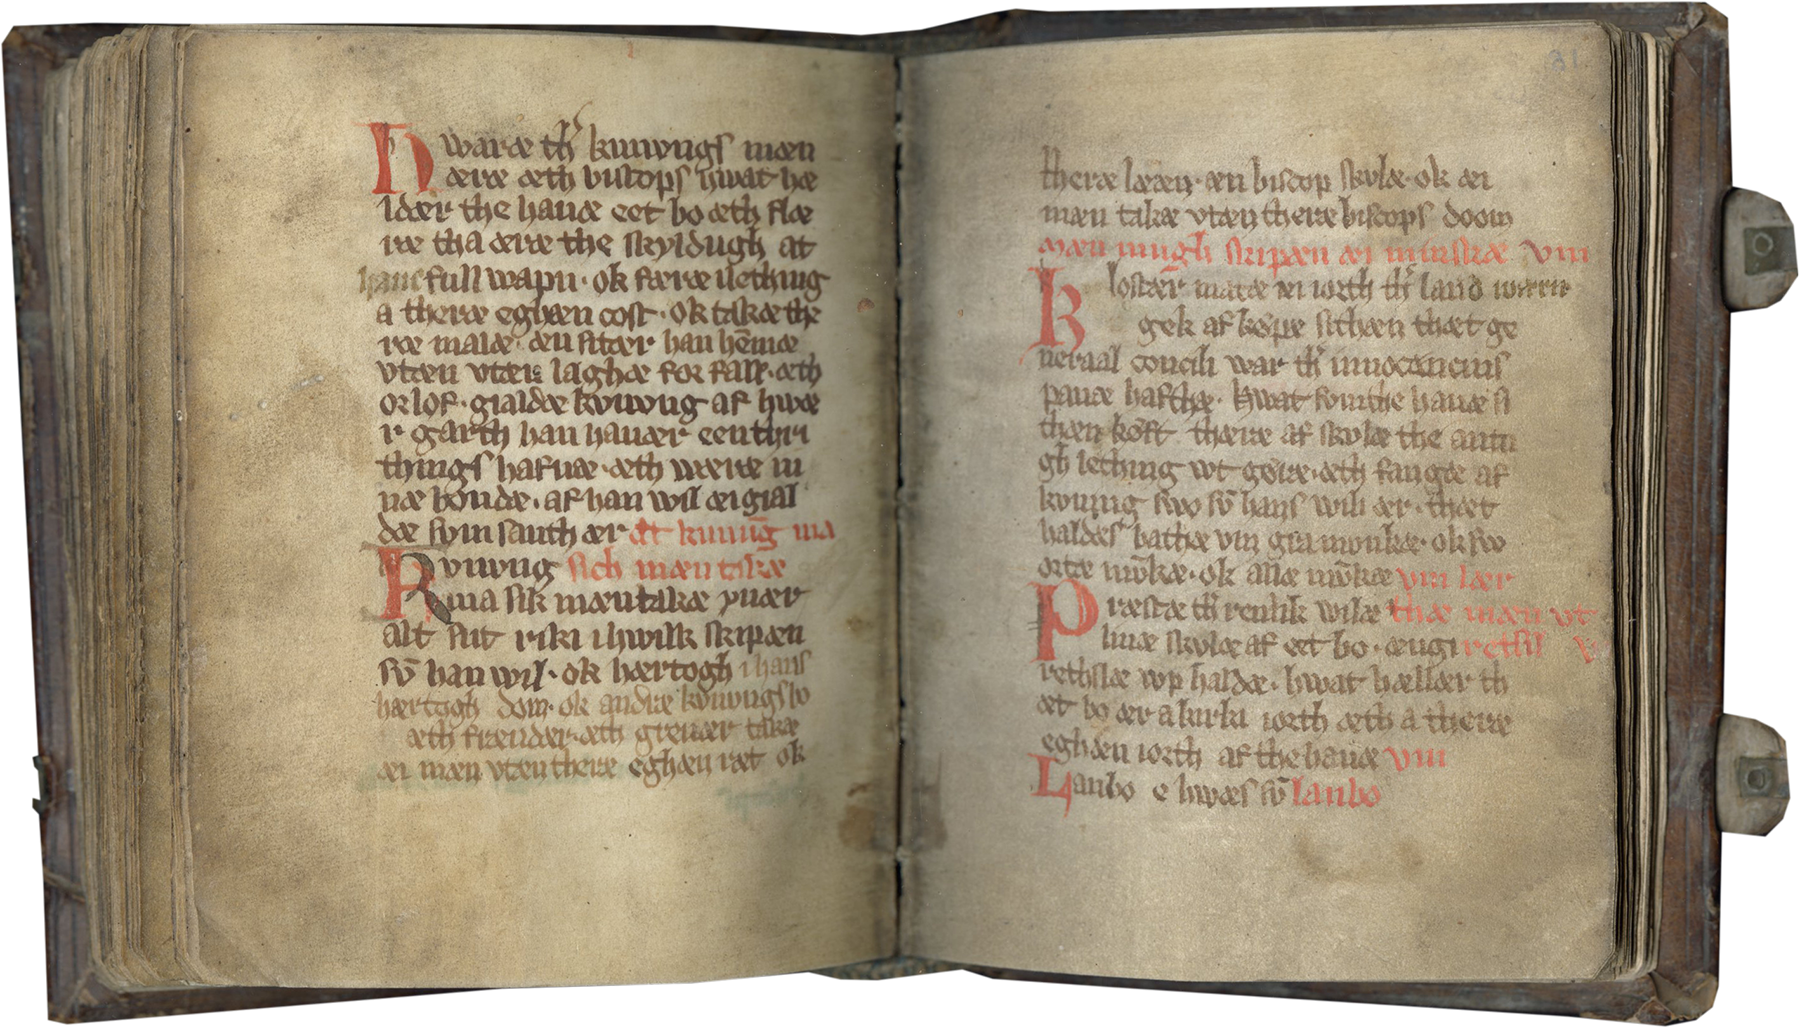 Hwaræ thr kunungs mæn
æræ æth biscops hwat hæ
ldær the hauæ eet bo æth flæ
ræ tha æræ the skyldugh at
haue full wapn · ok faræ i lething
a theræ eghæn cost · ok takæ the
ræ malæ æn sitær han hemæ
vtæn vtæn laghæ for fall · æth
orlof · gialdæ konung af hwæ
r garth han hauær een thri
things hafnæ · æth wære in
næ bondæ · af han wil æi gial
dæ sum santh ær at kunung ma
Kunung sich mæn takæ
ma sik mæn takæ yuær
alt sit riki i hwilk skipæn
sum han wil · ok hærtogh i hans
hærtogh dom · ok andræ konungs bo
æth frænder · æth greuær takæ
æi mæn vtæn theræ eghæn ræt ok
81
theræ lææn · æn biscop skulæ · ok æi
mæn takæ vtæn theræ biscops doom
mæn mugh skipæn æi minskæ VIII
Kloster matæ æi iorth thr land
gek af køpæ sithæn thæt ge
neraal concili war thr innocencius
pauæ hafthæ · hwat sum the hauæ si
thæn køft thæræ af skulæ the antu
gh lething wt gøræ · æth fangæ af
konung swo sum hans wili ær · thæt
haldæs bathæ vm gra munkæ · ok swo
ortæ munkæ · ok allæ munkæ vm lær
Præstæ thr renlik wilæ thæ mæn vt
liuæ skulæ af eet bo · ængi rethsl
rethslæ wp haldæ · hwat hællær th
æt bo ær a kirki iorth æth a theræ
eghæn iorth af the hauæ vm
Lanbo e hwæs sum lanbo